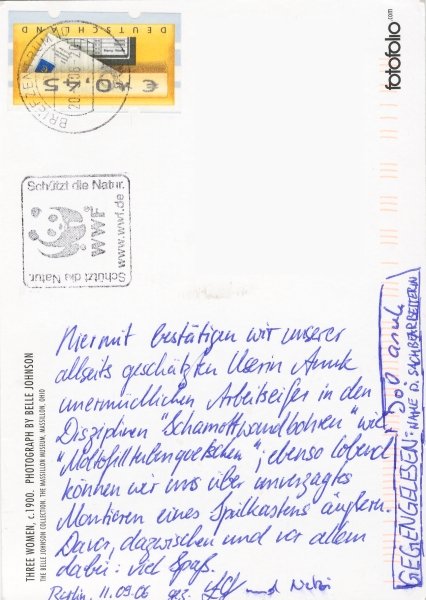 fotofolio.com
DEUTSCHLAND
€ *0,45
BRIEFZENTRUM
Schützt die Natur.
WWF
www.wwf.de
Schützt die Natur.
THREE WOMEN, c.1900. PHOTOGRAPH BY BELLE JOHNSON
THE BELLE JOHNSON COLLECTION: THE MASSILLON MUSEUM, MASSILLON, OHIO
Hiermit bestätigen wir unserer
allseits geschätzten Userin Anuk
unermüdlichen Arbeitseifer in den
Disziplinen "Schamottwandbohren" wie
"Moltofilltubenquetschen"; ebenso lobend
können wir uns über unverzagtes
Montieren eines Spülkastens äußern.
Davor, dazwischen und vor allem
dabei: viel Spaß.
Berlin, 11.09.06 gez. und
GEGENGELESEN:
NAME D. SACHBEARBEITERIN